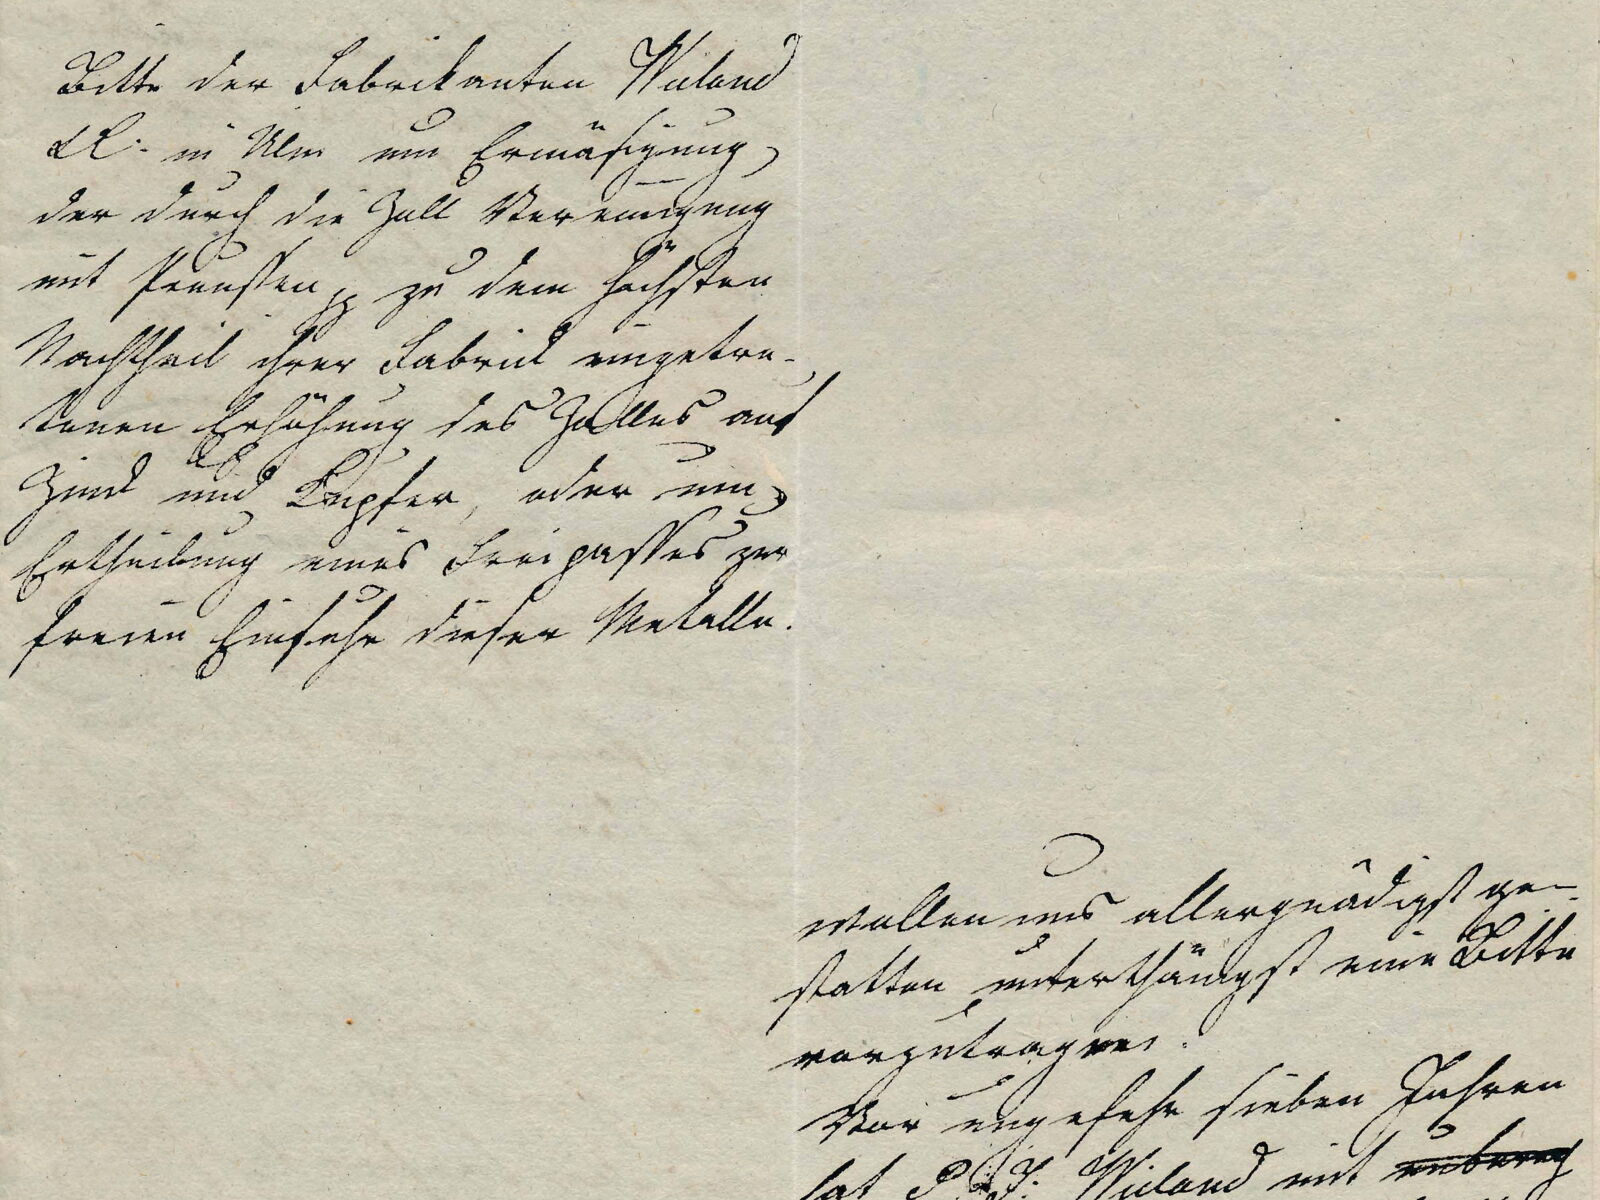 Bitte der Fabrikanten Wieland
& C: in Ulm um Ermäsigung
der durch die Zoll Vereinigung
mit Preussen zu dem höchsten
Nachtheil ihrer Fabrick eingetre-
tenen Erhöhung des Zolles auf
Zinck und Kupfer, oder um
Ertheilung eines Freipasses zur
freien Einfuhr dieser Metalle.
wollen uns allergnädigst ge-
statten unterthänigst eine Bitte
vorzutragen.
Vor ungefehr sieben Jahren
hat P. J: Wieland mit